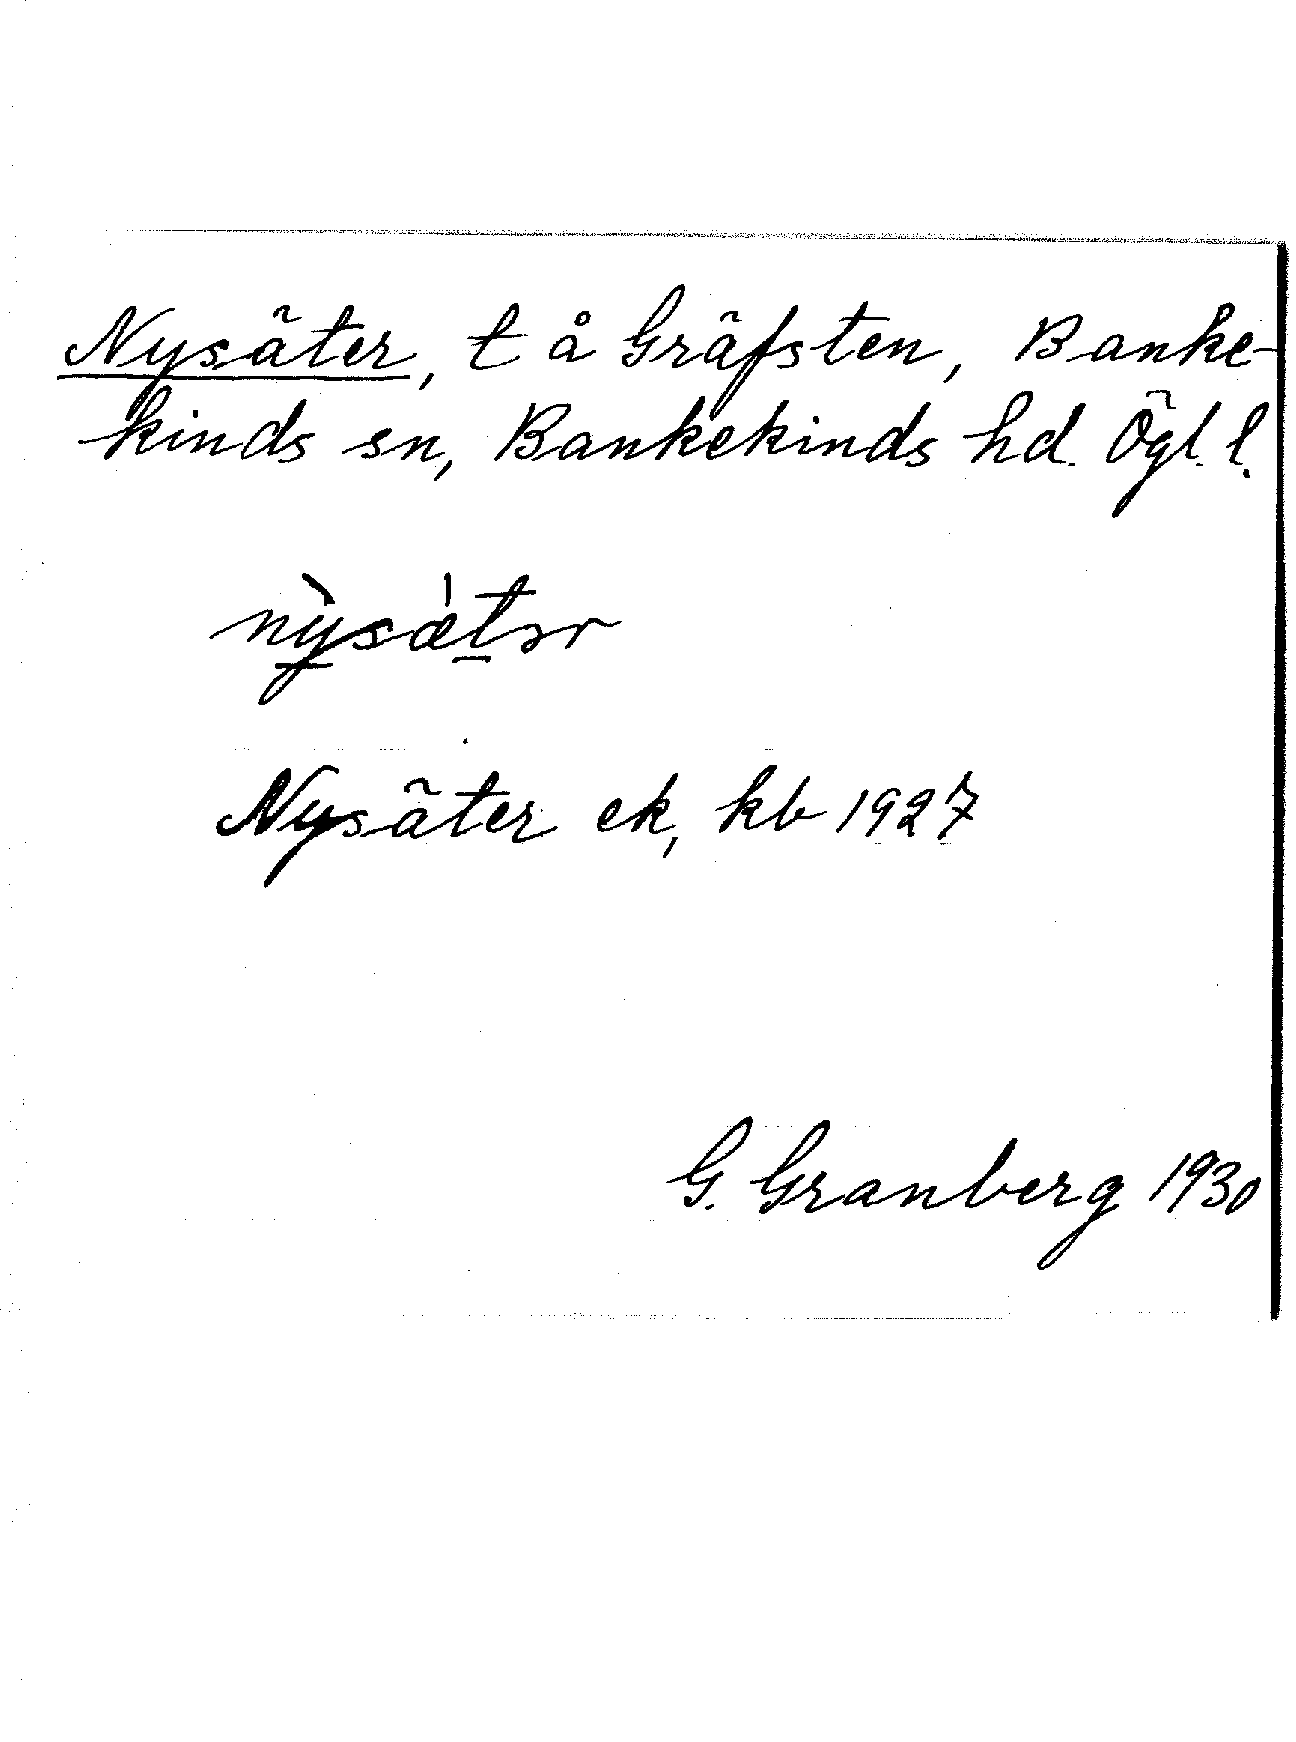 Nysäter, t å Gräfsten, Banke-
kinds sn, Bankekinds hd. Ögl. l.
nỳsǽtər
Nysäter ek, kb 1927
G. Granberg 1930